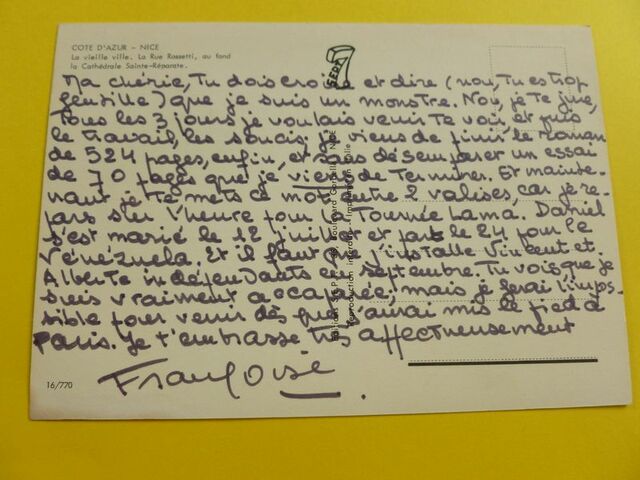 COTE D'AZUR - NICE
La vieille ville. La Rue Rossetti, au fond
la Cathédrale Sainte-Réparate.
Ma chérie, Tu dois croire et dire (non, Tu es trop
gentille) que je suis un monstre. Non, je te jure,
tous les 3 jours je voulais venir Te voir et puis
le travail, les soucis. Je viens de finir le roman
de 524 pages, enfin, et sans désemparer un essai
de 70 pages que je viens de Terminer. Et mainte-
nant je te mets ce mot entre 2 valises, car je re-
pars sur l'heure pour la Tournée Lama. Daniel
s'est marié le 12 juillet et part le 24 pour le
Vénézuela. Et il faut que j'installe Vincent et
Alberte indépendants en septembre. Tu vois que je
suis vraiment occupée! mais je ferai l'impos-
sible pour venir dès que j'aurai mis le pied à
Paris. Je t'embrasse très affectueusement
Françoise.
16/770